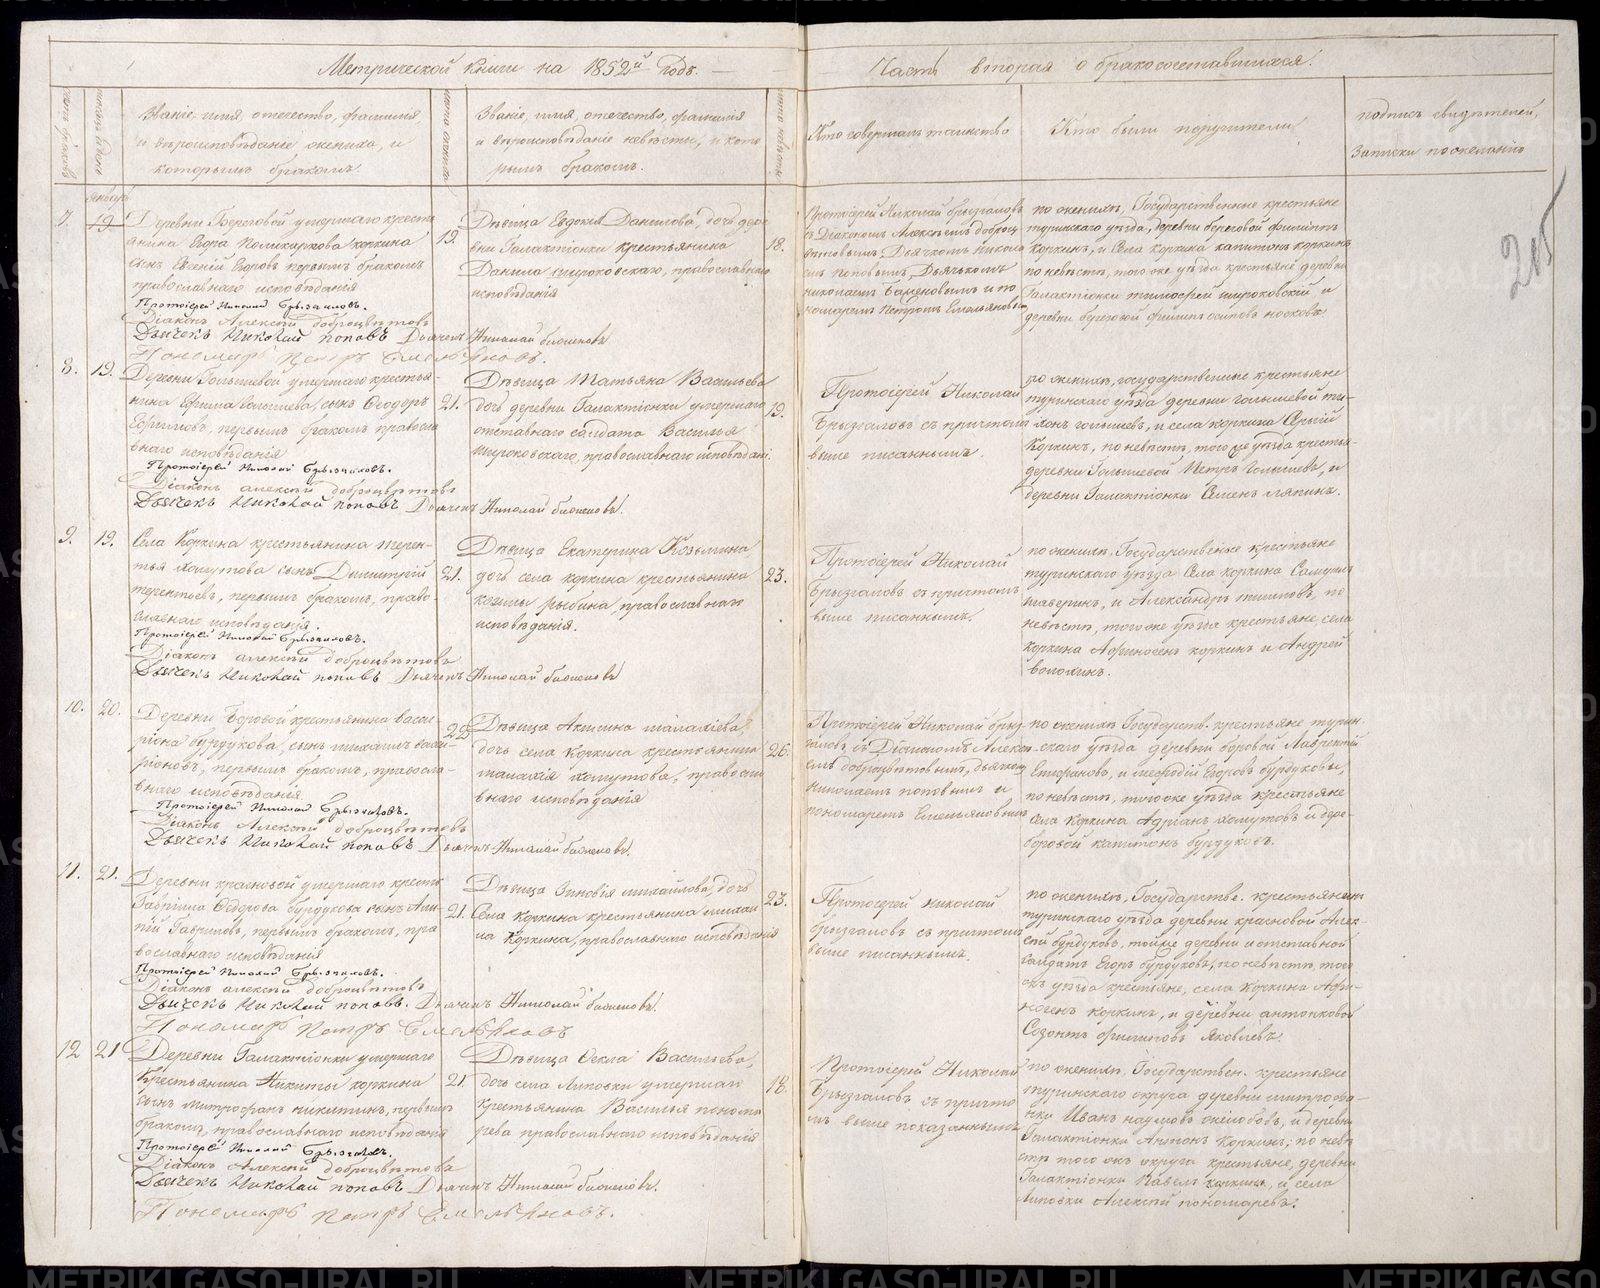 Метрической книги на 1852й годъ.
Часть вторая о бракосочетавшихся.
Званіе, имя, отечество, фамилія,
и вѣроисповѣданіе жениха, и
которымъ бракомъ.
Званіе, имя, отечество, фамилія
и вѣроисповѣданіе невѣсты, и кото
рымъ бракомъ.
Кто совершалъ таинство
Кто были поручители
подпись свидѣтелей,
Записки по желанію
январь
7. 19
Деревни Береговой умершаго кресть
янина Егора Поликарпова коркина
сынъ Евгеній Егоровъ первымъ бракомъ
православнаго исповѣданія
Протоіерей Николай Брызгаловъ.
Діаконъ Алексѣй доброцвѣтовъ
Дьячекъ Николай поповъ Дьячекъ Николай баженовъ
Пономарь Петръ Емельяновъ.
19.
Дѣвица Евдокія Данилова, дочь дере
вни Галактіонки крестьянина
Данила широковскаго, православнаго
исповѣданія
18.
Протоіерей Николай брызгаловъ
съ Діакономъ Алексѣемъ доброц
вѣтовымъ, Дьячкомъ Никола
емъ поповымъ, Дьячькомъ
николаемъ баженовымъ и по
номаремъ Петромъ Емельяновымъ
по женихѣ, Государственные крестьяне
туринскаго уѣзда, деревни береговой филиппъ
коркинъ, и Села коркина капитонъ коркинъ
по невѣстѣ, того же уѣзда крестьяне деревни
Галактіонки тимофей широковскій и
деревни береговой филипъ осиповъ носковъ
8. 19.
Деревни Голышевой умершаго крестья-
нина Ефима Голышева, сынъ Ѳеодоръ
Ефимовъ, первымъ бракомъ правосла
внаго исповѣданія
Протоіерей Николай Брызгаловъ.
Діаконъ алексѣй доброцвѣтовъ
Дьячекъ Николай поповъ Дьячекъ Николай баженовъ.
21.
Дѣвица Татьяна Васильева
дочь деревни Галактіонки умершаго
отставнаго солдата Василья
широковскаго, православнаго исповѣданія
19.
Протоіерей Николай
Брызгаловъ съ причтомъ
выше писаннымъ.
по женихѣ, государственные крестьяне
туринскаго уѣзда деревни голышевой ти-
хонъ голышевъ, и села коркина Сергій
Коркинъ, по невѣстѣ, того же уѣзда крестья-
деревни Голышевой Петръ Голышевъ, и
деревни Галактіонки Семенъ ляпинъ.
9. 19.
Села Коркина крестьянина терен-
тья хомутова сынъ Димитрій
терентьевъ, первымъ бракомъ, право-
славнаго исповѣданія.
Протоіерей Николай Брызгаловъ.
Діаконъ алексѣй доброцвѣтовъ
Дьячекъ Николай поповъ Дьячекъ Николай баженовъ
21.
Дѣвица Екатерина Козьмина
дочь села коркина крестьянина
козьмы рыбина, православнаго
исповѣданія.
23.
Протоіерей Николай
Брызгаловъ съ причтомъ
выше писаннымъ.
по женихѣ, Государственые крестьяне
туринскаго уѣзда Села коркина Самуилъ
шаверинъ, и Александръ шиловъ, по
невѣстѣ, того же уѣзда крестьяне, села
коркина Афиногенъ коркинъ и Андрей
волохинъ.
10. 20.
Деревни Боровой крестьянина васи-
ріона бурдукова, сынъ михаилъ
ріоновъ, первымъ бракомъ, правосла-
внаго исповѣданія
Протоіерей Николай Брызгаловъ.
Діаконъ Алексѣй доброцвѣтовъ
Дьячекъ Николай поповъ Дьячекъ Николай баженовъ.
22
Дѣвица Акилина малахіева
дочь села Коркина крестьянина
малахія хомутова, правосла
внаго исповѣданія
26.
Протоіерей Николай брыз-
галовъ съ Діакономъ Алексѣ-
емъ доброцвѣтовымъ, дьячкомъ
николаемъ поповымъ и
пономаремъ Емельяновымъ
по женихѣ Государств. крестьяне турин
скаго уѣзда деревни боровой Лаврентій
Епифановъ, и меѳодій Егоровъ бурдуковы,
по невѣстѣ, того же уѣзда крестьяне
Села Коркина Адріанъ хомутовъ и дере-
боровой капитонъ бурдуковъ.
11. 21.
Деревни красновой умершаго кресть
Гавріила Ѳедорова бурдукова сынъ
Гавриловъ, первымъ бракомъ, пра
вославнаго исповѣданія
Протоіерей Николай Брызгаловъ.
Діаконъ алексѣй доброцвѣтовъ
Дьячекъ Николай поповъ. Дьячекъ Николай баженовъ.
Пономарь Петръ Емельяновъ
21.
Дѣвица Зиновія михайлова, дочь
Села Коркина крестьянина михаи
ла Коркина, православнаго исповѣданія
23.
Протоіерей николай
брызгаловъ съ причтомъ
выше писаннымъ.
по женихѣ, Государстве. крестьянинъ
туринскаго уѣзда деревни красновой Алек-
сѣй бурдуковъ, той же деревни и отставной
солдатъ Егоръ бурдуковъ, по невѣстѣ, того
жъ уѣзда крестьяне, села Коркина Афи-
ногенъ коркинъ, и деревни антонковой
Созонтъ филиповъ Яковлевъ.
12 21
Деревни Галактіонки умершаго
Крестьянина Никиты коркина
сынъ митрофанъ никитинъ, первымъ
бракомъ, православнаго исповѣданія
Протоіерей Николай Брызгаловъ.
Діаконъ Алексѣй доброцвѣтовъ
Дьячекъ Николай поповъ Дьячекъ Николай баженовъ.
Пономарь Петръ Емельяновъ.
21.
Дѣвица Ѳекла Васильева,
дочь села Липовки умершаго
крестьянина Василья понома
рева православнаго исповѣданія
18.
Протоіерей Николай
Брызгаловъ съ причто
мъ выше показаннымъ
по женихѣ, Государствен. крестьяне
туринскаго округа деревни митрофа-
нки Иванъ наумовъ, и деревни
Галактіонки Антонъ Коркинъ; по невѣ
стѣ того жъ округа крестьяне, деревни
Галактіонки Павелъ коркинъ, и села
Липовки Алексѣй пономаревъ.
205
METRIKI.GASO-URAL.RU